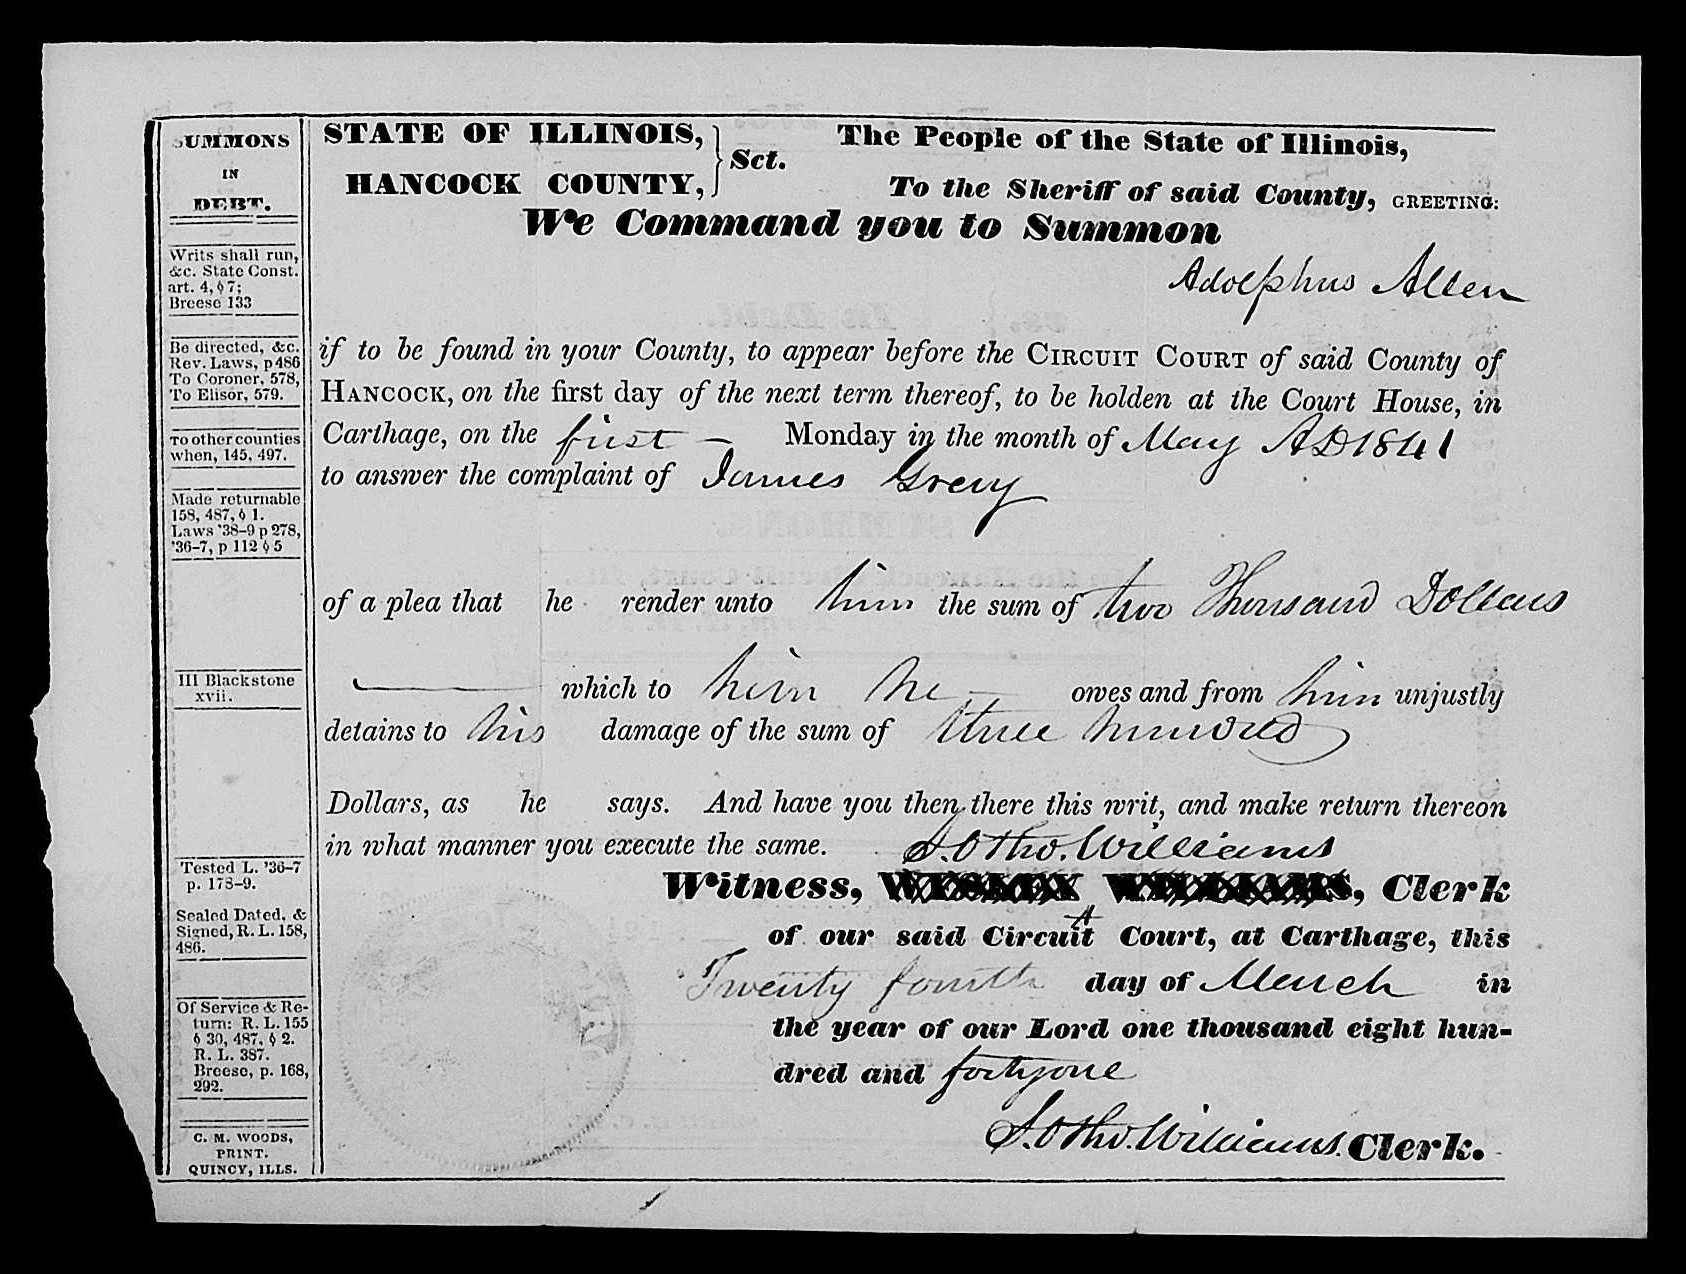 SUMMONS
IN
DEBT.
Writs shall run,
&c. State Const.
art. 4, § 7;
Breese 133
Be directed, &c.
Rev. Laws, p 486
To Coroner, 578,
To Elisor, 579.
To other counties
when, 145, 497.
Made returnable
158, 487, § 1.
Laws '38-9 p 278,
'36-7, p 112 § 5
III Blackstone
xvii.
Tested L. '36-7
p. 178-9.
Sealed Dated, &
Signed, R. L. 158,
486.
Of Service & Re-
turn: R. L. 155
§ 30, 487, § 2.
R. L. 387.
Breese, p. 168,
292.
C. M. WOODS,
PRINT.
QUINCY, ILLS.
STATE OF ILLINOIS,
HANCOCK COUNTY,
Sct.
The People of the State of Illinois,
To the Sheriff of said County, GREETING:
We Command you to Summon
Adolphus Allen
if to be found in your County, to appear before the CIRCUIT COURT of said County of
HANCOCK, on the first day of the next term thereof, to be holden at the Court House, in
Carthage, on the first — Monday in the month of May AD 1841
to answer the complaint of James Grey
of a plea that he render unto him the sum of two Thousand Dollars
— which to him he — owes and from him unjustly
detains to his damage of the sum of three hundred
Dollars, as he says. And have you then there this writ, and make return thereon
in what manner you execute the same.
S. Otho. Williams
Witness, WESLEY WILLIAMS, Clerk
of our said Circuit Court, at Carthage, this
Twenty fourth day of March in
the year of our Lord one thousand eight hun-
dred and forty one
S. Otho. Williams. Clerk.